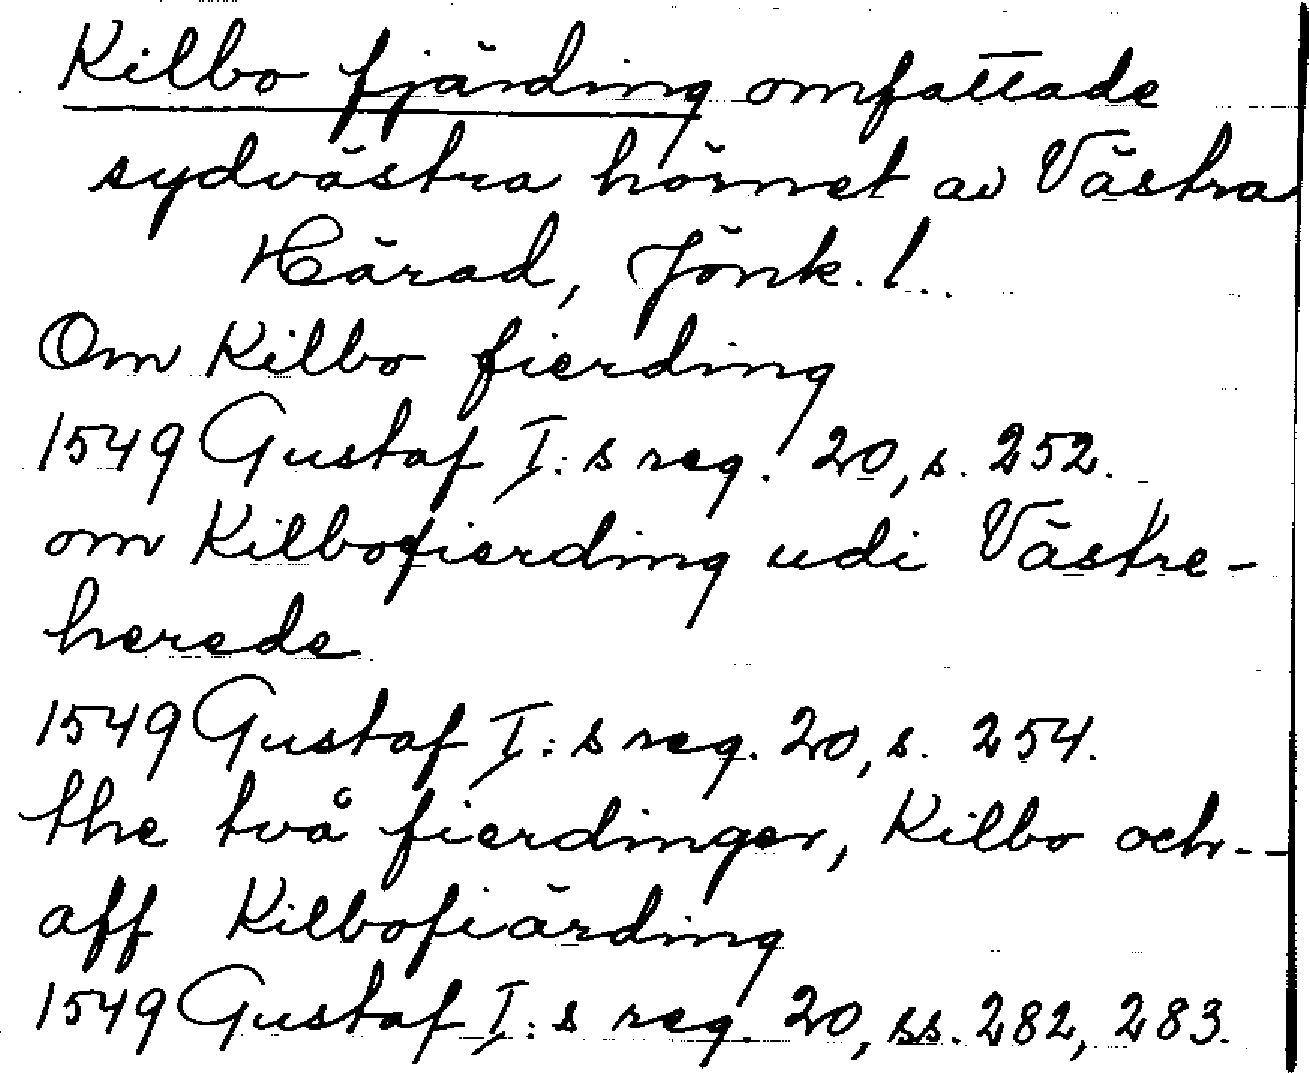 Kilbo fjärding omfattade
sydvästra hörnet av Västra
Härad, Jönk. l.
Om Kilbo fierding
1549 Gustaf I:s reg. 20, s. 252.
om Kilbofierding udi Västre-
herede
1549 Gustaf I:s reg. 20, s. 254.
the två fierdinger, Kilbo och--
aff Kilbofiärding
1549 Gustaf I:s reg. 20, ss. 282, 283.